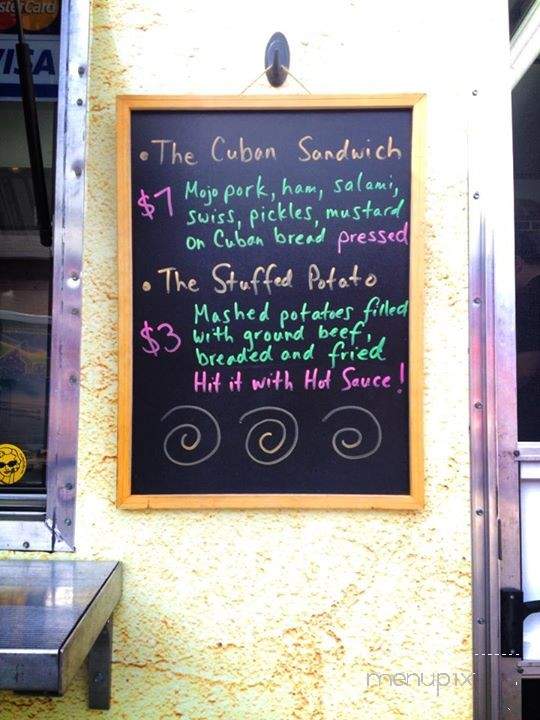 MasterCard
VISA
• The Cuban Sandwich
$7 Mojo pork, ham, salami,
swiss, pickles, mustard
on Cuban bread pressed
• The Stuffed Potato
Mashed potatoes filled
$3 with ground beef,
breaded and fried
Hit it with Hot Sauce!
menupix